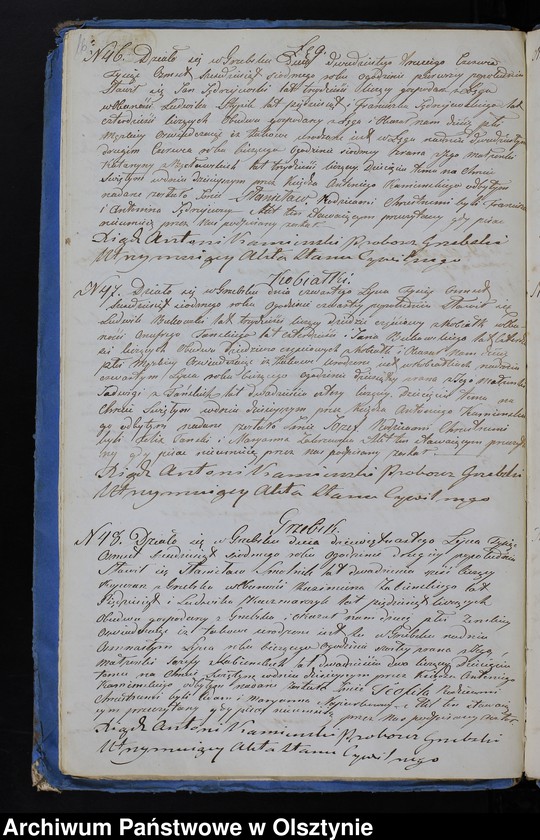 Łęg.
N46. Działo się w Grebsku dnia dwudziestego trzeciego Czerwca
tysiąc ośmset siedmdziesiąt siódmego roku o godzinie pierwszej popołudniu
Stawił się Jan lat trzydzieści liczący gospodarz z Łęga
w obecności Ludwika lat pięćdziesiąt i Franciszka lat
czterdzieści liczących Obudwu gospodarzy z Łęga i Okazał nam dziecię płci
Męzkiej Oświadczając iż takowe urodzone jest w Łęgu na dniu dwudziestym
drugim Czerwca roku bieżącego o godzinie siódmej zrana z Jego małżonki
Katarzyny z lat trzydzieści liczącej. Dziecięciu temu na Chrzcie
Świętym w dniu dzisiejszym przez Księdza Antoniego Kamieńskiego odbytym
nadane zostało Imię Stanisław Rodzicami Chrzestnemi byli Franciszek
i Antonina Akt ten stawającym przeczytany gdy pisać
nieumieją przez Nas podpisany został.
Xiądz Antoni Kamienski Proboszcz Grebski
Utrzymujący Akta Stanu Cywilnego
Kobiałki.
N47. Działo się w Grebsku dnia czwartego Lipca tysiąc ośmset
siedmdziesiąt siódmego roku o godzinie czwartej popołudniu Stawił się
Ludwik Bukowski lat trzydzieści liczący dziedzic cząstkowy z Kobiałk w obe-
cności Onufrego lat czterdzieści Jana Bukowskiego lat
liczących Obudwu dziedziców cząstkowych z Kobiałk i Okazał Nam dziecię
płci Męzkiej Oświadczając iż takowe urodzone jest w Kobiałkach na dniu
czwartym Lipca roku bieżącego o godzinie dziesiątej zrana z Jego małżonki
Jadwigi z lat dwadzieścia cztery liczącej. Dziecięciu temu na
Chrzcie Świętym w dniu dzisiejszym przez Księdza Antoniego Kamieńskie-
go odbytym nadane zostało Imię Józef Rodzicami Chrzestnemi
byli i Maryanna Akt ten stawającym przeczyta-
ny gdy pisać nieumieją przez Nas podpisany został
Xiądz Antoni Kamienski Proboszcz Grebski
Utrzymujący Akta Stanu Cywilnego
Grebsk.
N48. Działo się w Grebsku dnia dziewiętnastego Lipca tysiąc
ośmset siedmdziesiąt siódmego roku o godzinie drugiej popołudniu
Stawił się Stanisław lat dwadzieścia liczący
z Grebska w obecności Kazimierza lat
pięćdziesiąt i Ludwika Kaczmarczyk lat pięćdziesiąt liczących
Obudwu gospodarzy z Grebska i okazał nam dziecię płci żeńskiej
Oświadczając iż takowe urodzone jest tu w Grebsku na dniu
ośmnastym Lipca roku bieżącego o godzinie zrana z Jego
małżonki Józefy lat dwadzieścia dwa liczącej. Dziecięciu
temu na Chrzcie Świętym w dniu dzisiejszym przez Księdza Antoniego
Kamieńskiego odbytym nadane zostało Imię Teofila Rodzicami
Chrzestnemi byli i Maryanna Akt ten stawają-
cym przeczytany gdy pisać nieumieją przez Nas podpisany został
Xiądz Antoni Kamienski Proboszcz Grebski
Utrzymujący Akta Stanu Cywilnego
Archiwum Państwowe w Olsztynie